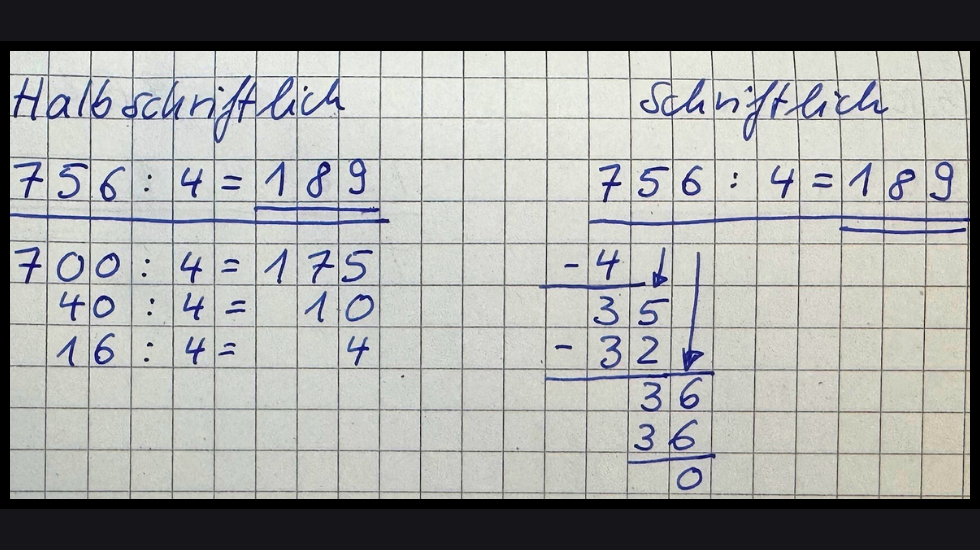 Halbschriftlich
756 : 4 = 189
700 : 4 = 175
40 : 4 = 10
16 : 4 = 4
Schriftlich
756 : 4 = 189
- 4
35
- 32
36
36
0